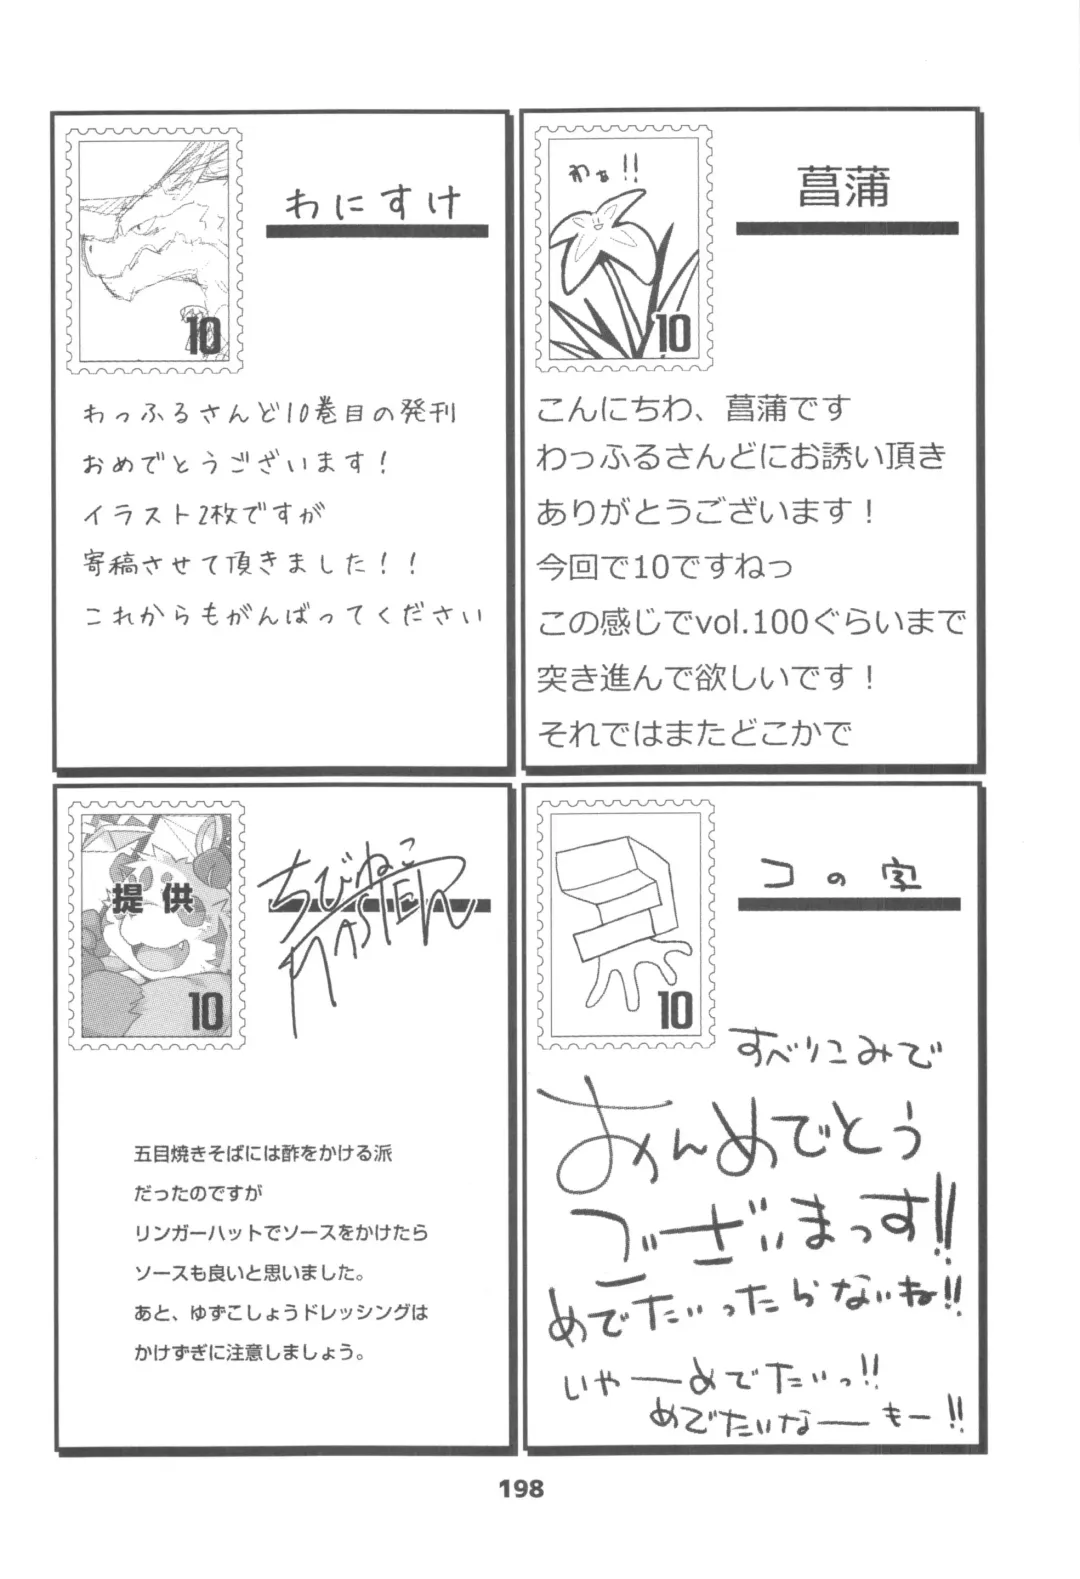 わにすけ
10
わっふるさんど10巻目の発刊
おめでとうございます！
イラスト2枚ですが
寄稿させて頂きました！！
これからもがんばってください
わぁ!!
菖蒲
10
こんにちわ、菖蒲です
わっふるさんどにお誘い頂き
ありがとうございます！
今回で10ですねっ
この感じでvol.100ぐらいまで
突き進んで欲しいです！
それではまたどこかで
提供
ちびねこ
MASTER
10
五目焼きそばには酢をかける派
だったのですが
リンガーハットでソースをかけたら
ソースも良いと思いました。
あと、ゆずこしょうドレッシングは
かけずぎに注意しましょう。
コの字
10
すべりこみで
おんめでとう
ございまっす!!
めでたいったらないね!!
いやーめでたいっ!!
めでたいなーもー!!
198